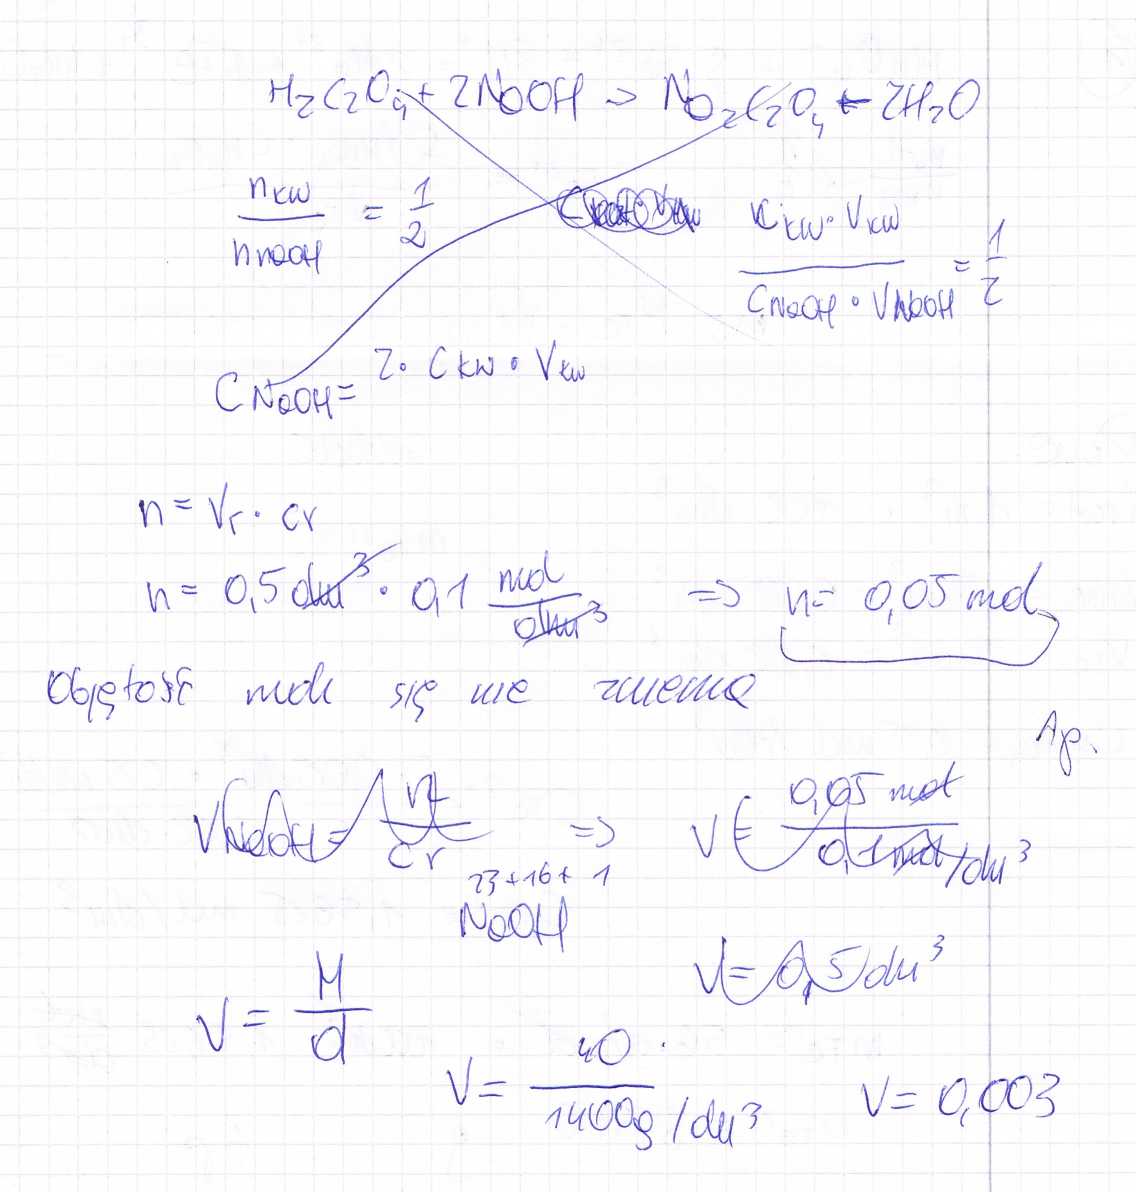 H₂C₂O₄ + 2NaOH => Na₂C₂O₄ + 2H₂O
nkw / nNaOH = 1/2
Ckw · Vkw / CNaOH · VNaOH = 1/2
CNaOH = 2 · Ckw · Vkw
n = Vr · cr
n = 0,5 dm³ · 0,1 mol/dm³ => n = 0,05 mol
Objętość moli się nie zmienia
VNaOH = n/cr => V = 0,05 mol / 0,1 mol/dm³
23+16+1
NaOH
V = 0,5 dm³
V = M/d
V = 40 / 1400g/dm³
V = 0,003